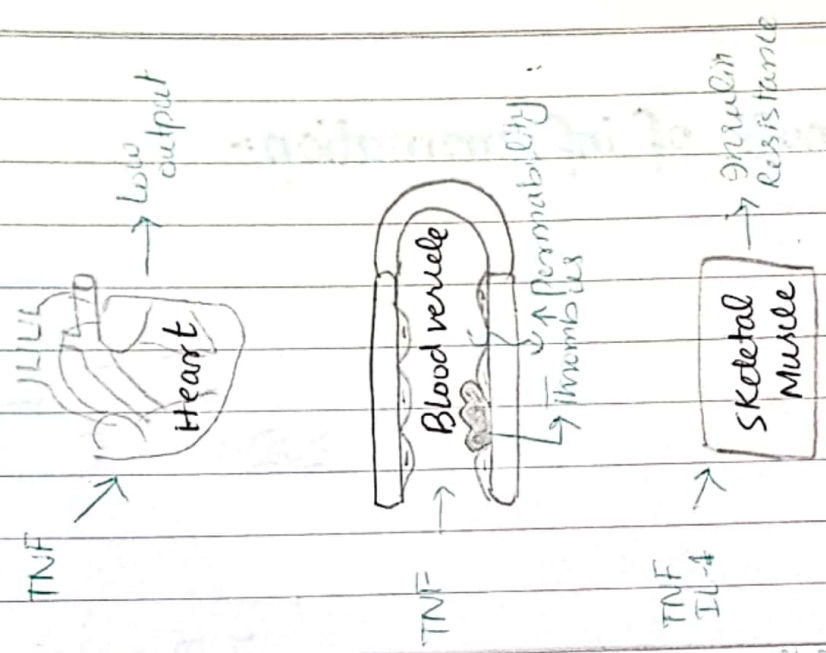 TNF
Heart
→ Low
output
TNF →
Blood vessele
→ ↑ Permability
→ Thrombies
TNF
IL-1
Skeletal
Muscle
→ Insulin
Resistance
of inflammation: